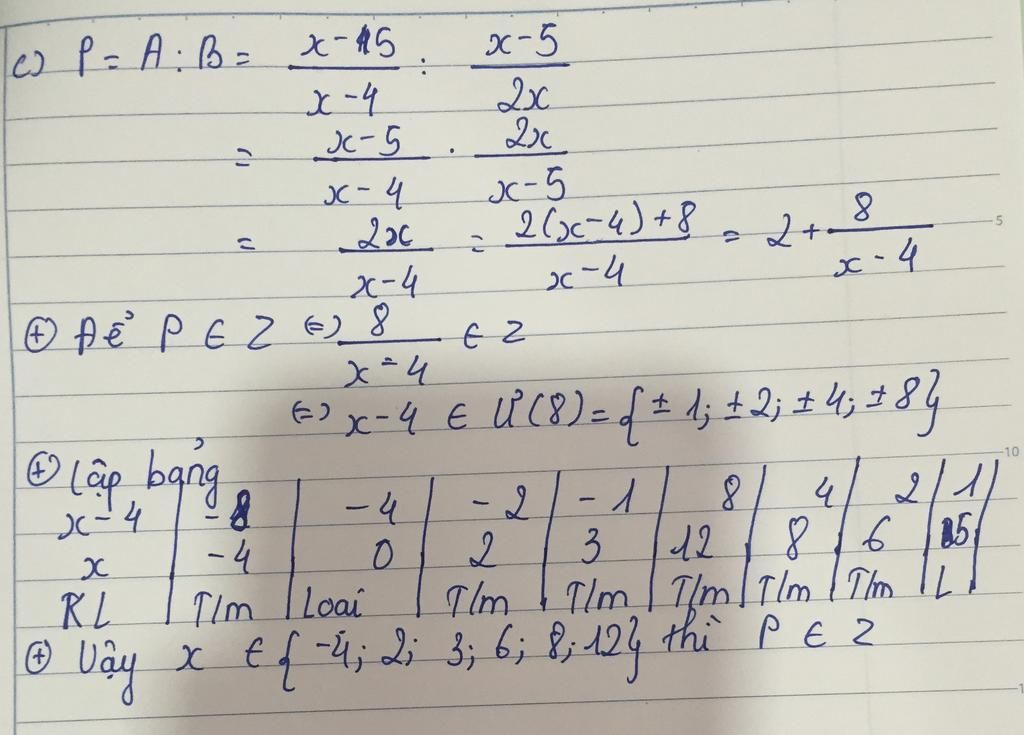 c) P = A : B = (x-15)/(x-4) : (x-5)/(2x)
= (x-5)/(x-4) . (2x)/(x-5)
= (2x)/(x-4) = (2(x-4)+8)/(x-4) = 2 + 8/(x-4)
⊕ Để P ∈ Z ⇔ 8/(x-4) ∈ Z
⇔ x-4 ∈ Ư(8) = {±1; ±2; ±4; ±8}
⊕ Lập bảng
x-4 | -8 | -4 | -2 | -1 | 8 | 4 | 2 | 1 |
x | -4 | 0 | 2 | 3 | 12 | 8 | 6 | 5 |
KL | T/m | Loại | T/m | T/m | T/m | T/m | T/m | L |
⊕ Vậy x ∈ {-4; 2; 3; 6; 8; 12} thì P ∈ Z
5
10
1